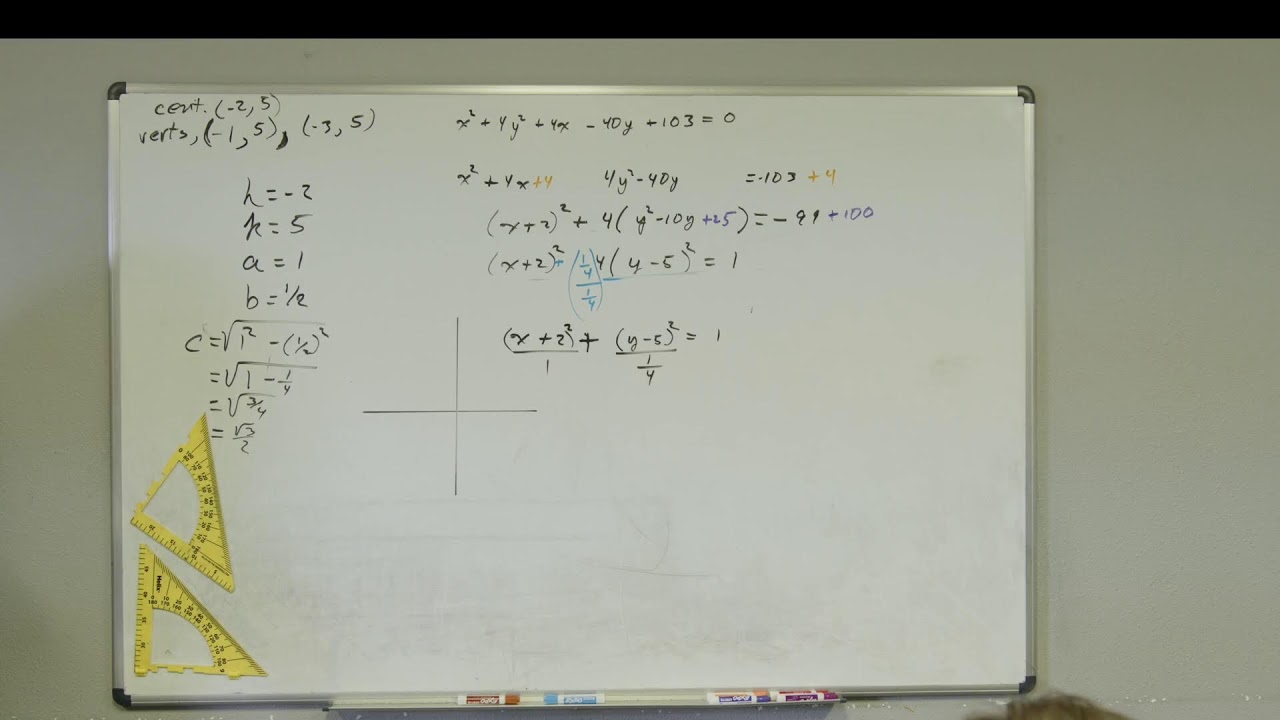 cent. (-2, 5)
verts, (-1, 5), (-3, 5)
h = -2
k = 5
a = 1
b = 1/2
c = √(1² - (1/2)²)
= √(1 - 1/4)
= √(3/4)
= √3/2
x² + 4y² + 4x - 40y + 103 = 0
x² + 4x + 4 4y² - 40y = -103 + 4
(x+2)² + 4(y² - 10y + 25) = - 99 + 100
(x+2)² + (1/4 / 1/4) 4(y - 5)² = 1
(x + 2)²/1 + (y-5)²/(1/4) = 1
Helix